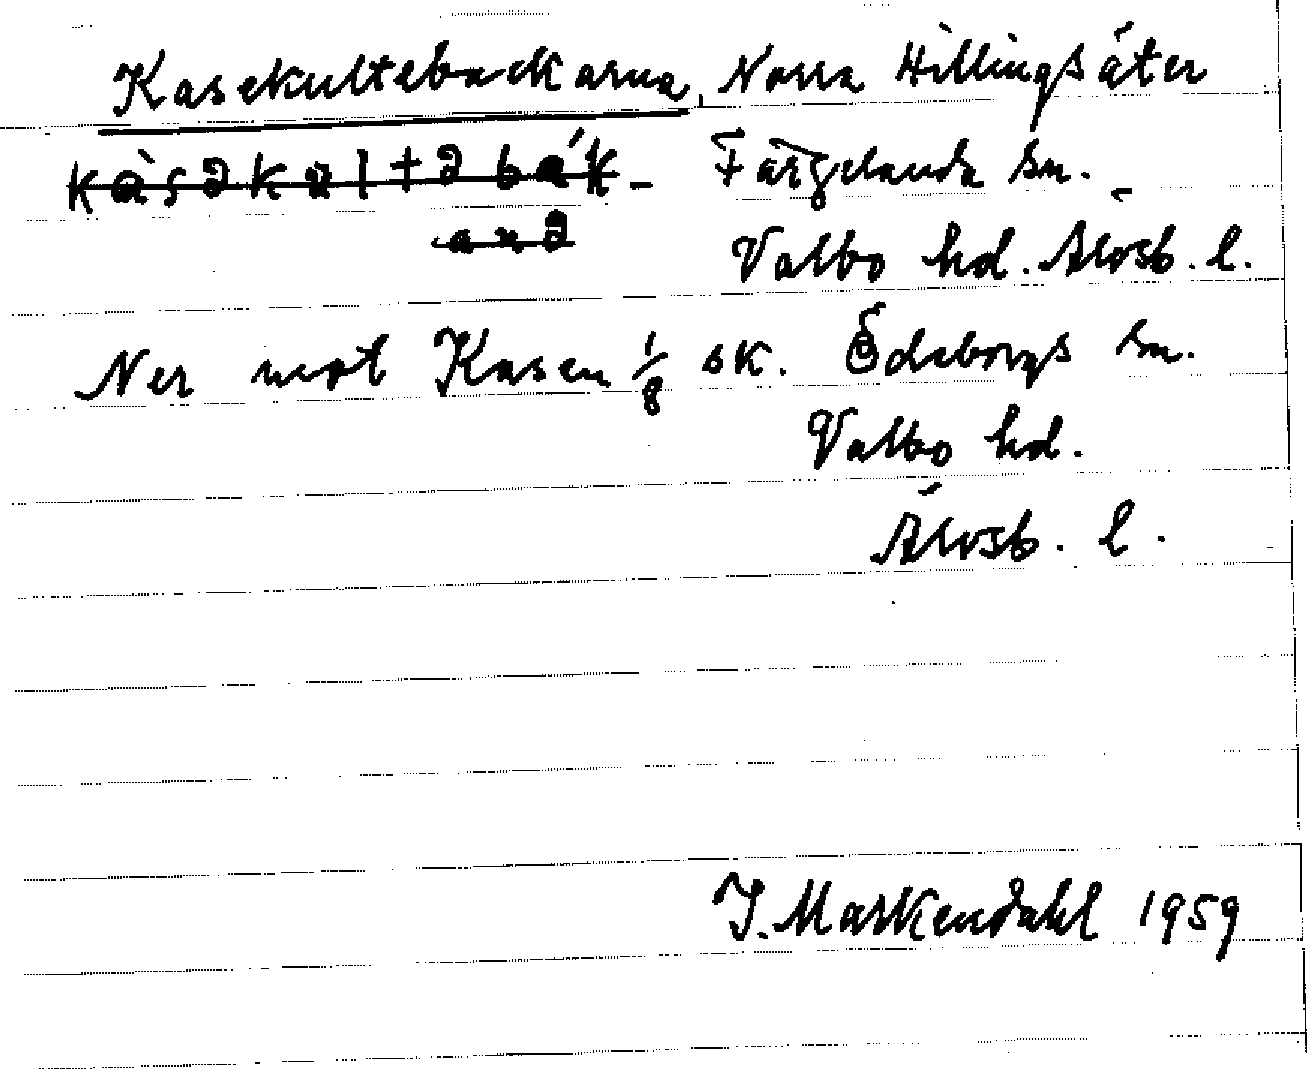 Kasekultebackarna, Norra Hillingsäter
kàsəkʉltəbák- Färgelanda sn.
anə Valbo hd. Älvsb. l.
Ner mot Kasen 1/8 sk. Ödeborgs sn.
Valbo hd.
Älvsb. l.
J. Markendahl 1959